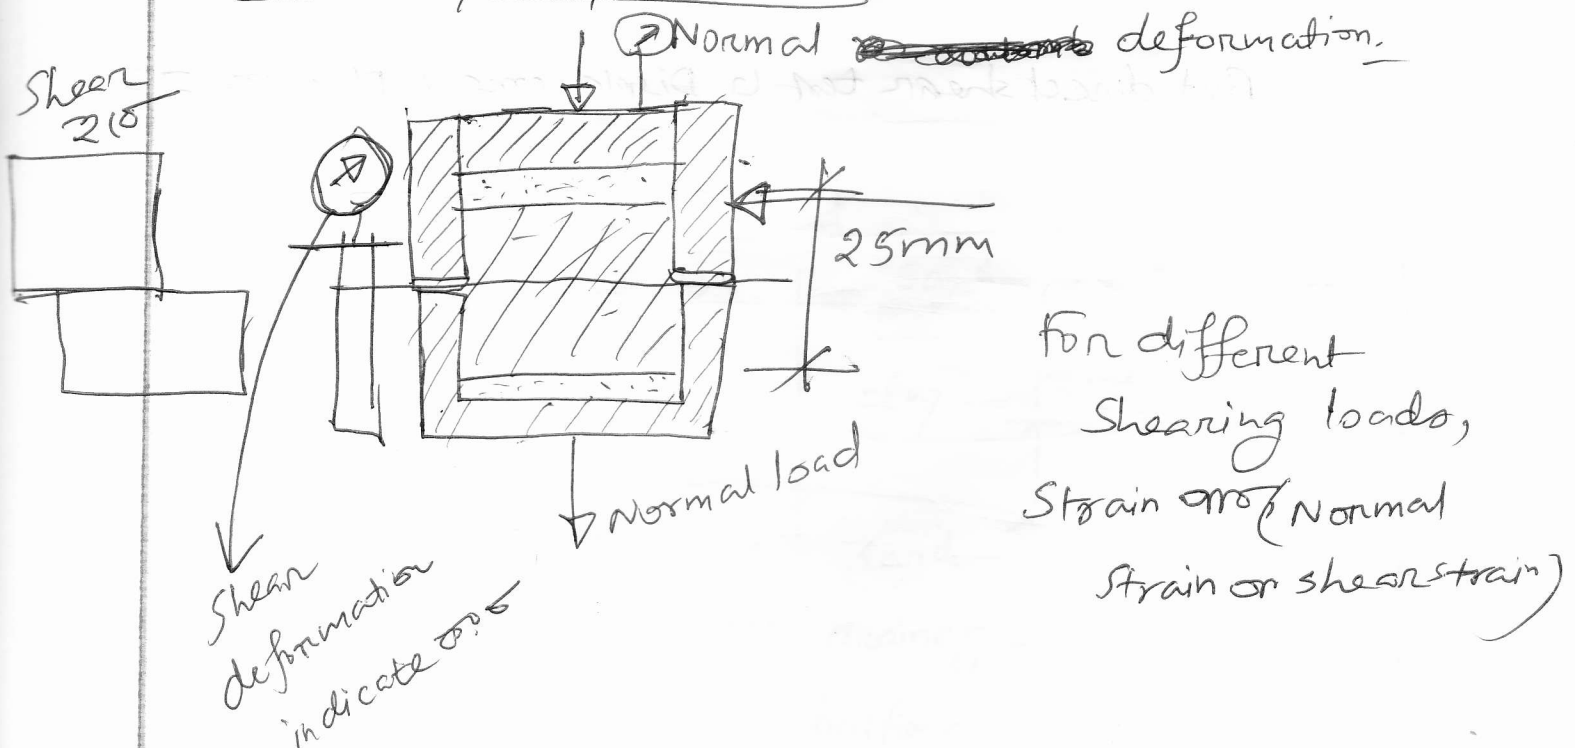 Normal deformation.
Shear
25mm
For different
Shearing loads,
Strain (Normal
Strain or shear strain)
Normal load
Shear
deformation
indicate